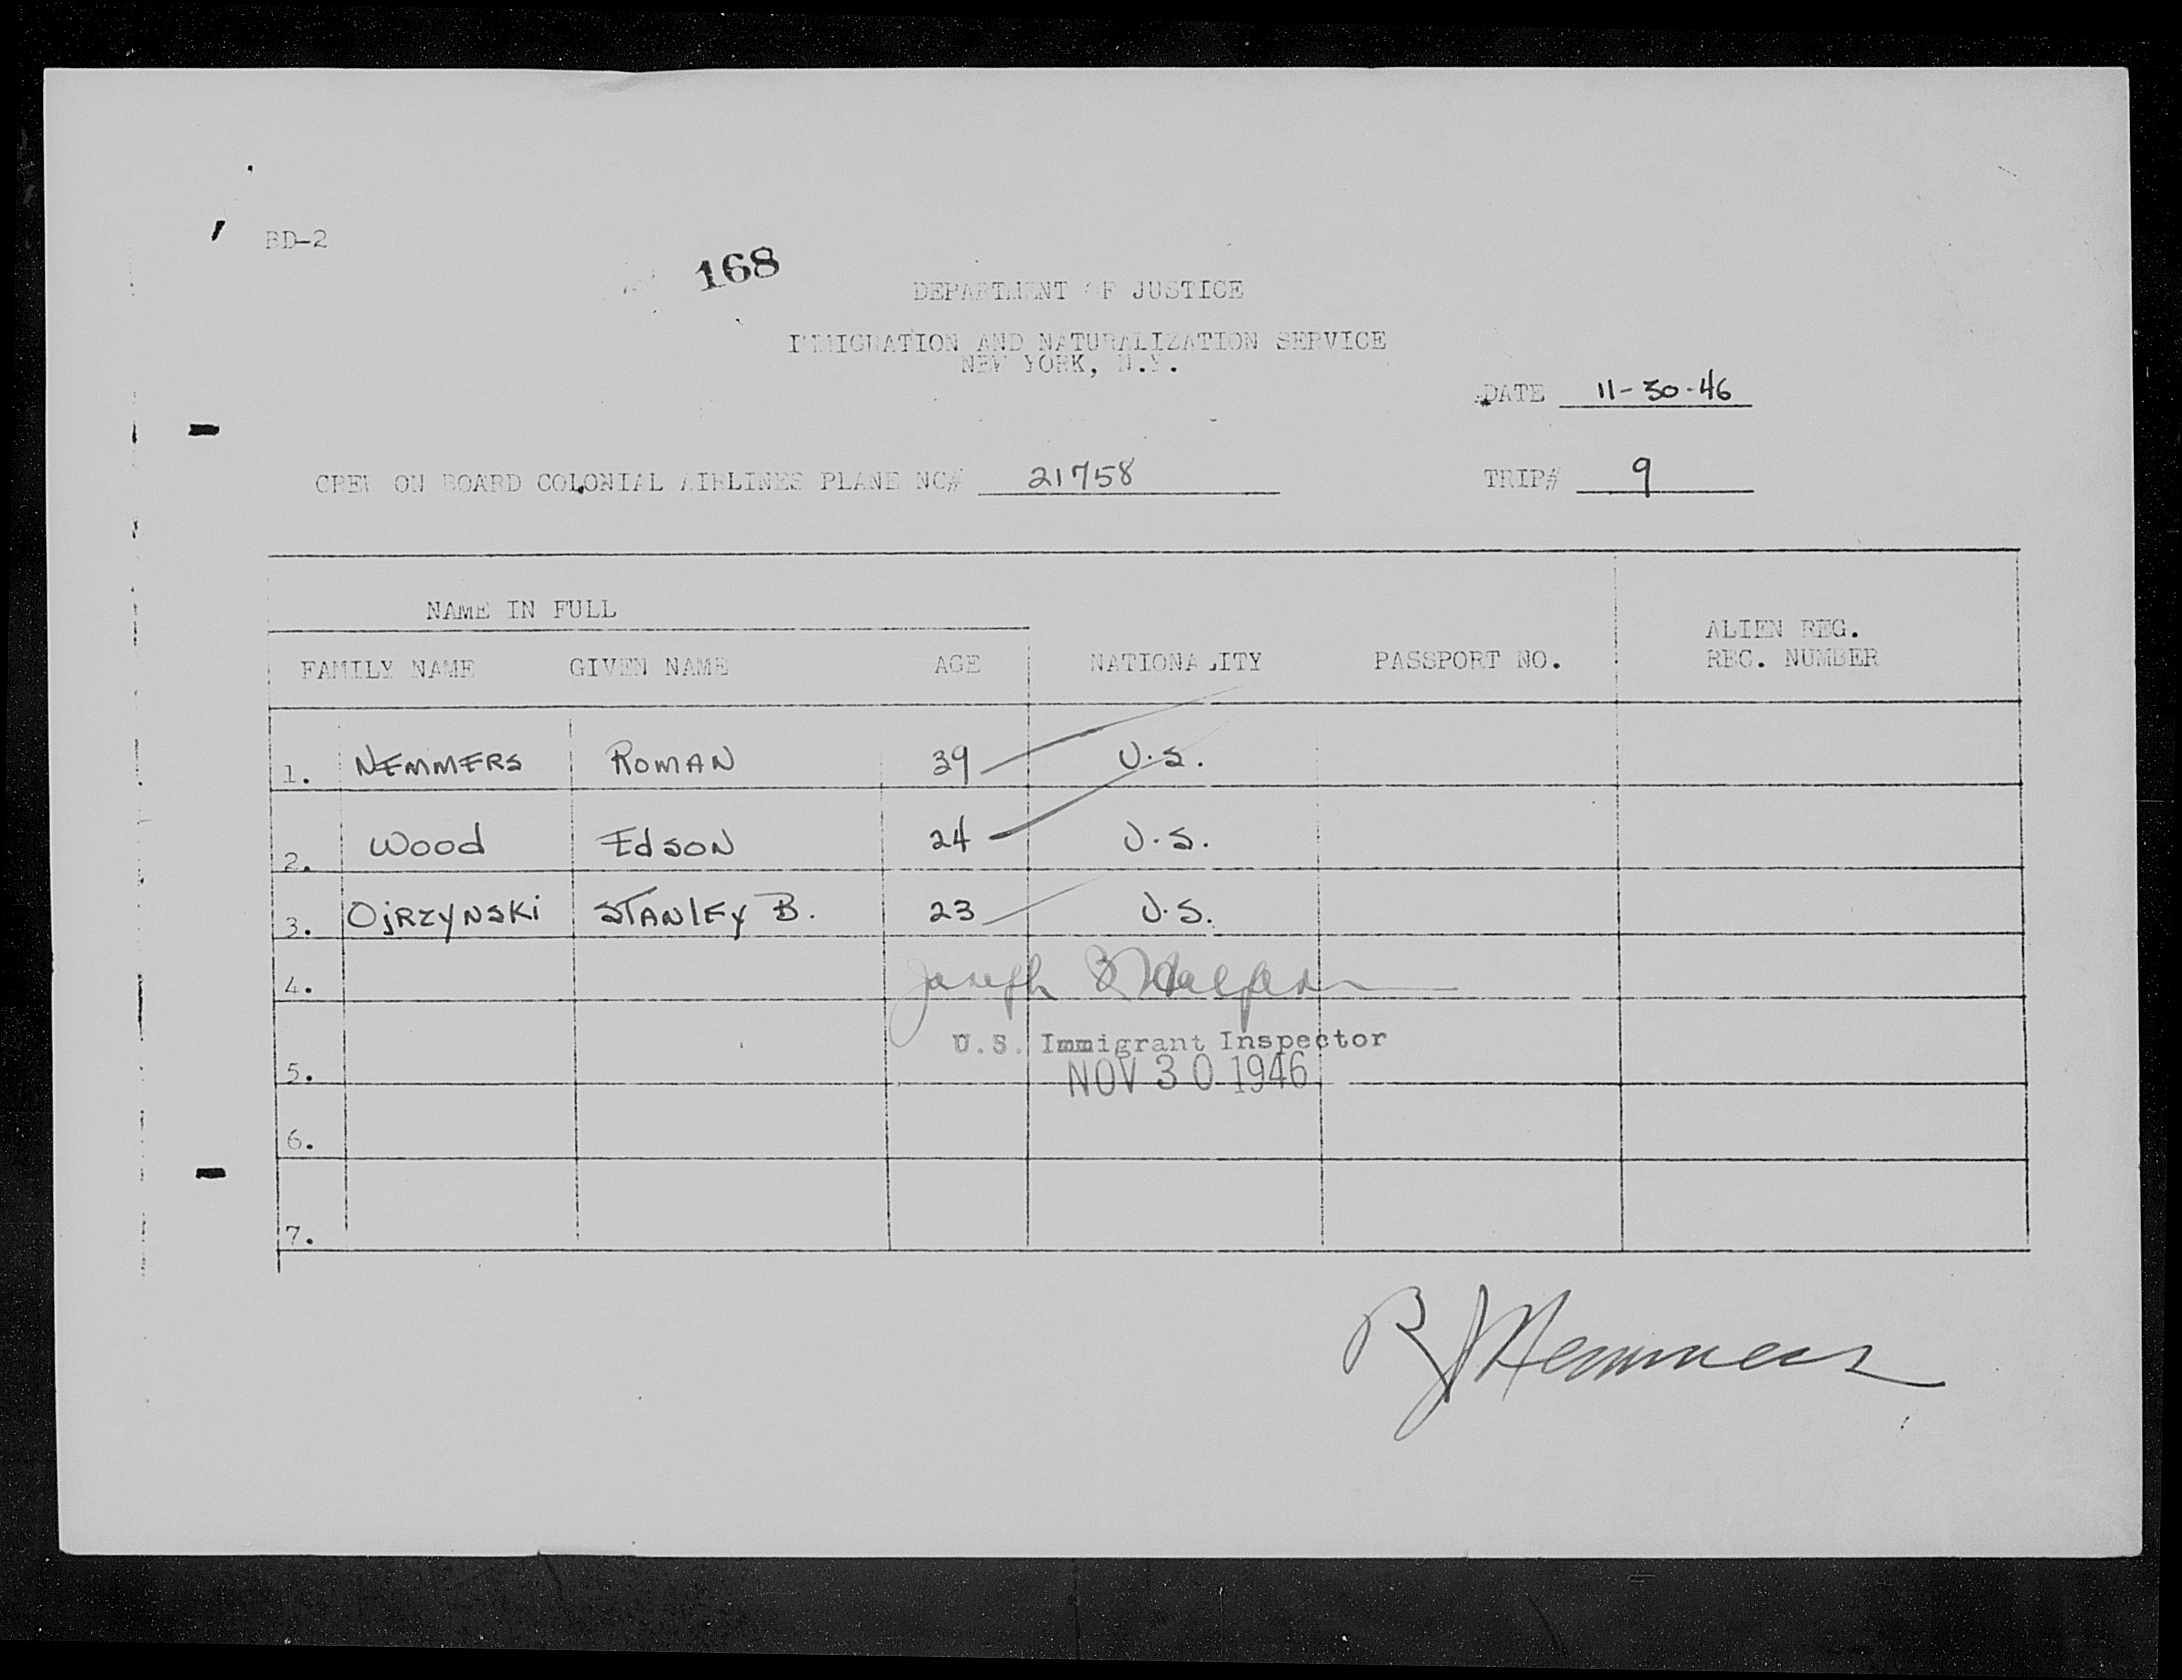 BD-2
168
DEPARTMENT OF JUSTICE
IMMIGRATION AND NATURALIZATION SERVICE
NEW YORK, N.Y.
DATE 11-30-46
CREW ON BOARD COLONIAL AIRLINES PLANE NC# 21758 TRIP# 9
NAME IN FULL
FAMILY NAME GIVEN NAME AGE NATIONALITY PASSPORT NO. ALIEN REG. REC. NUMBER
1. NEMMERS ROMAN 39 U.S.
2. Wood Edson 24 U.S.
3. OjRzyNSKi STANlEy B. 23 U.S.
4. Joseph
U.S. Immigrant Inspector
5. NOV 30 1946
6.
7.
R J Nemmers